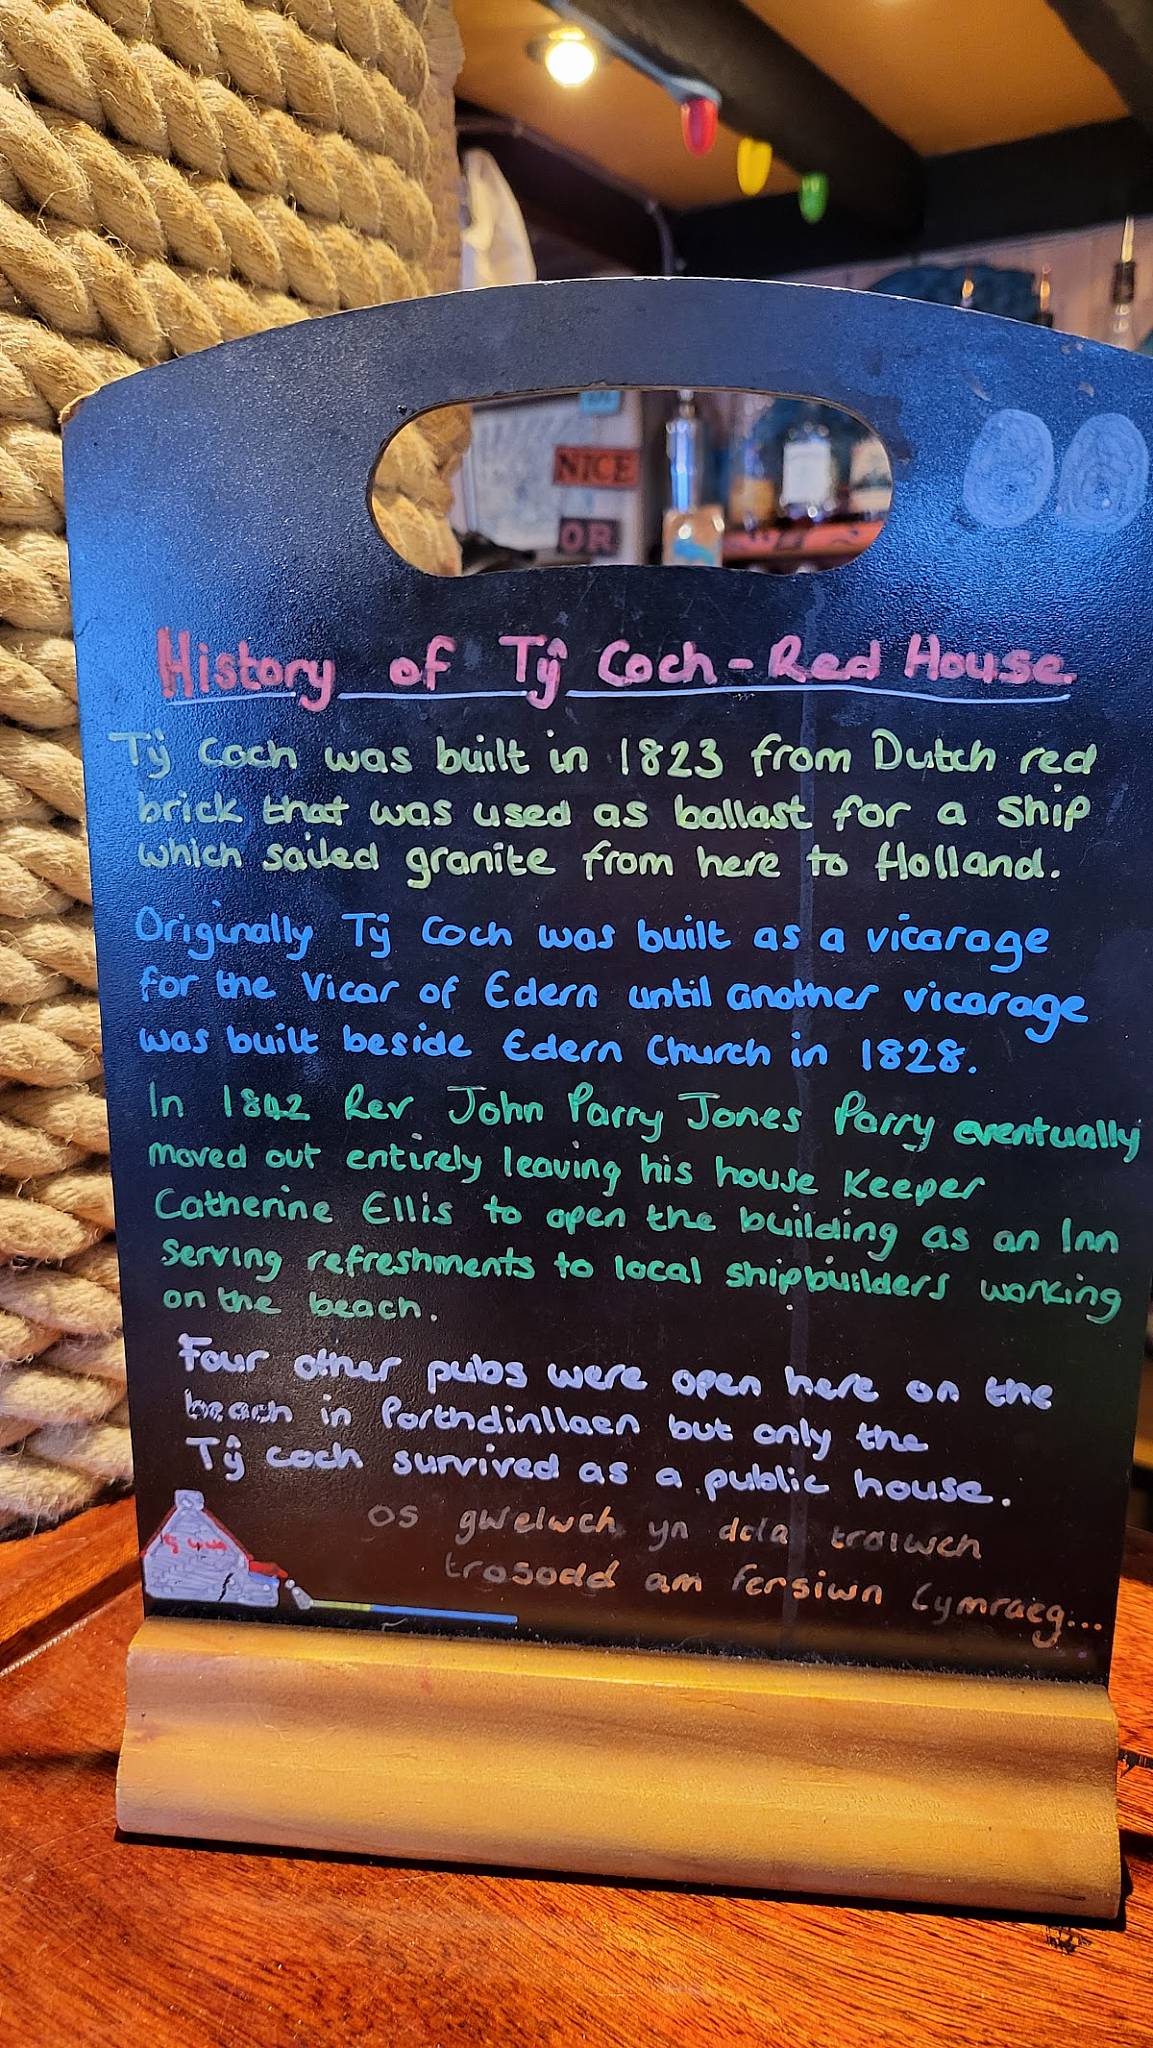 NICE
OR
History of Tŷ Coch - Red House.
Tŷ Coch was built in 1823 from Dutch red
brick that was used as ballast for a Ship
which sailed granite from here to Holland.
Originally Tŷ Coch was built as a vicarage
for the Vicar of Edern until another vicarage
was built beside Edern Church in 1828.
In 1842 Rev John Parry Jones Parry eventually
moved out entirely leaving his house Keeper
Catherine Ellis to open the building as an Inn
serving refreshments to local shipbuilders working
on the beach.
Four other pubs were open here on the
beach in Porthdinllaen but only the
Tŷ Coch survived as a public house.
os gwelwch yn dda troiwch
trosodd am fersiwn Cymraeg...